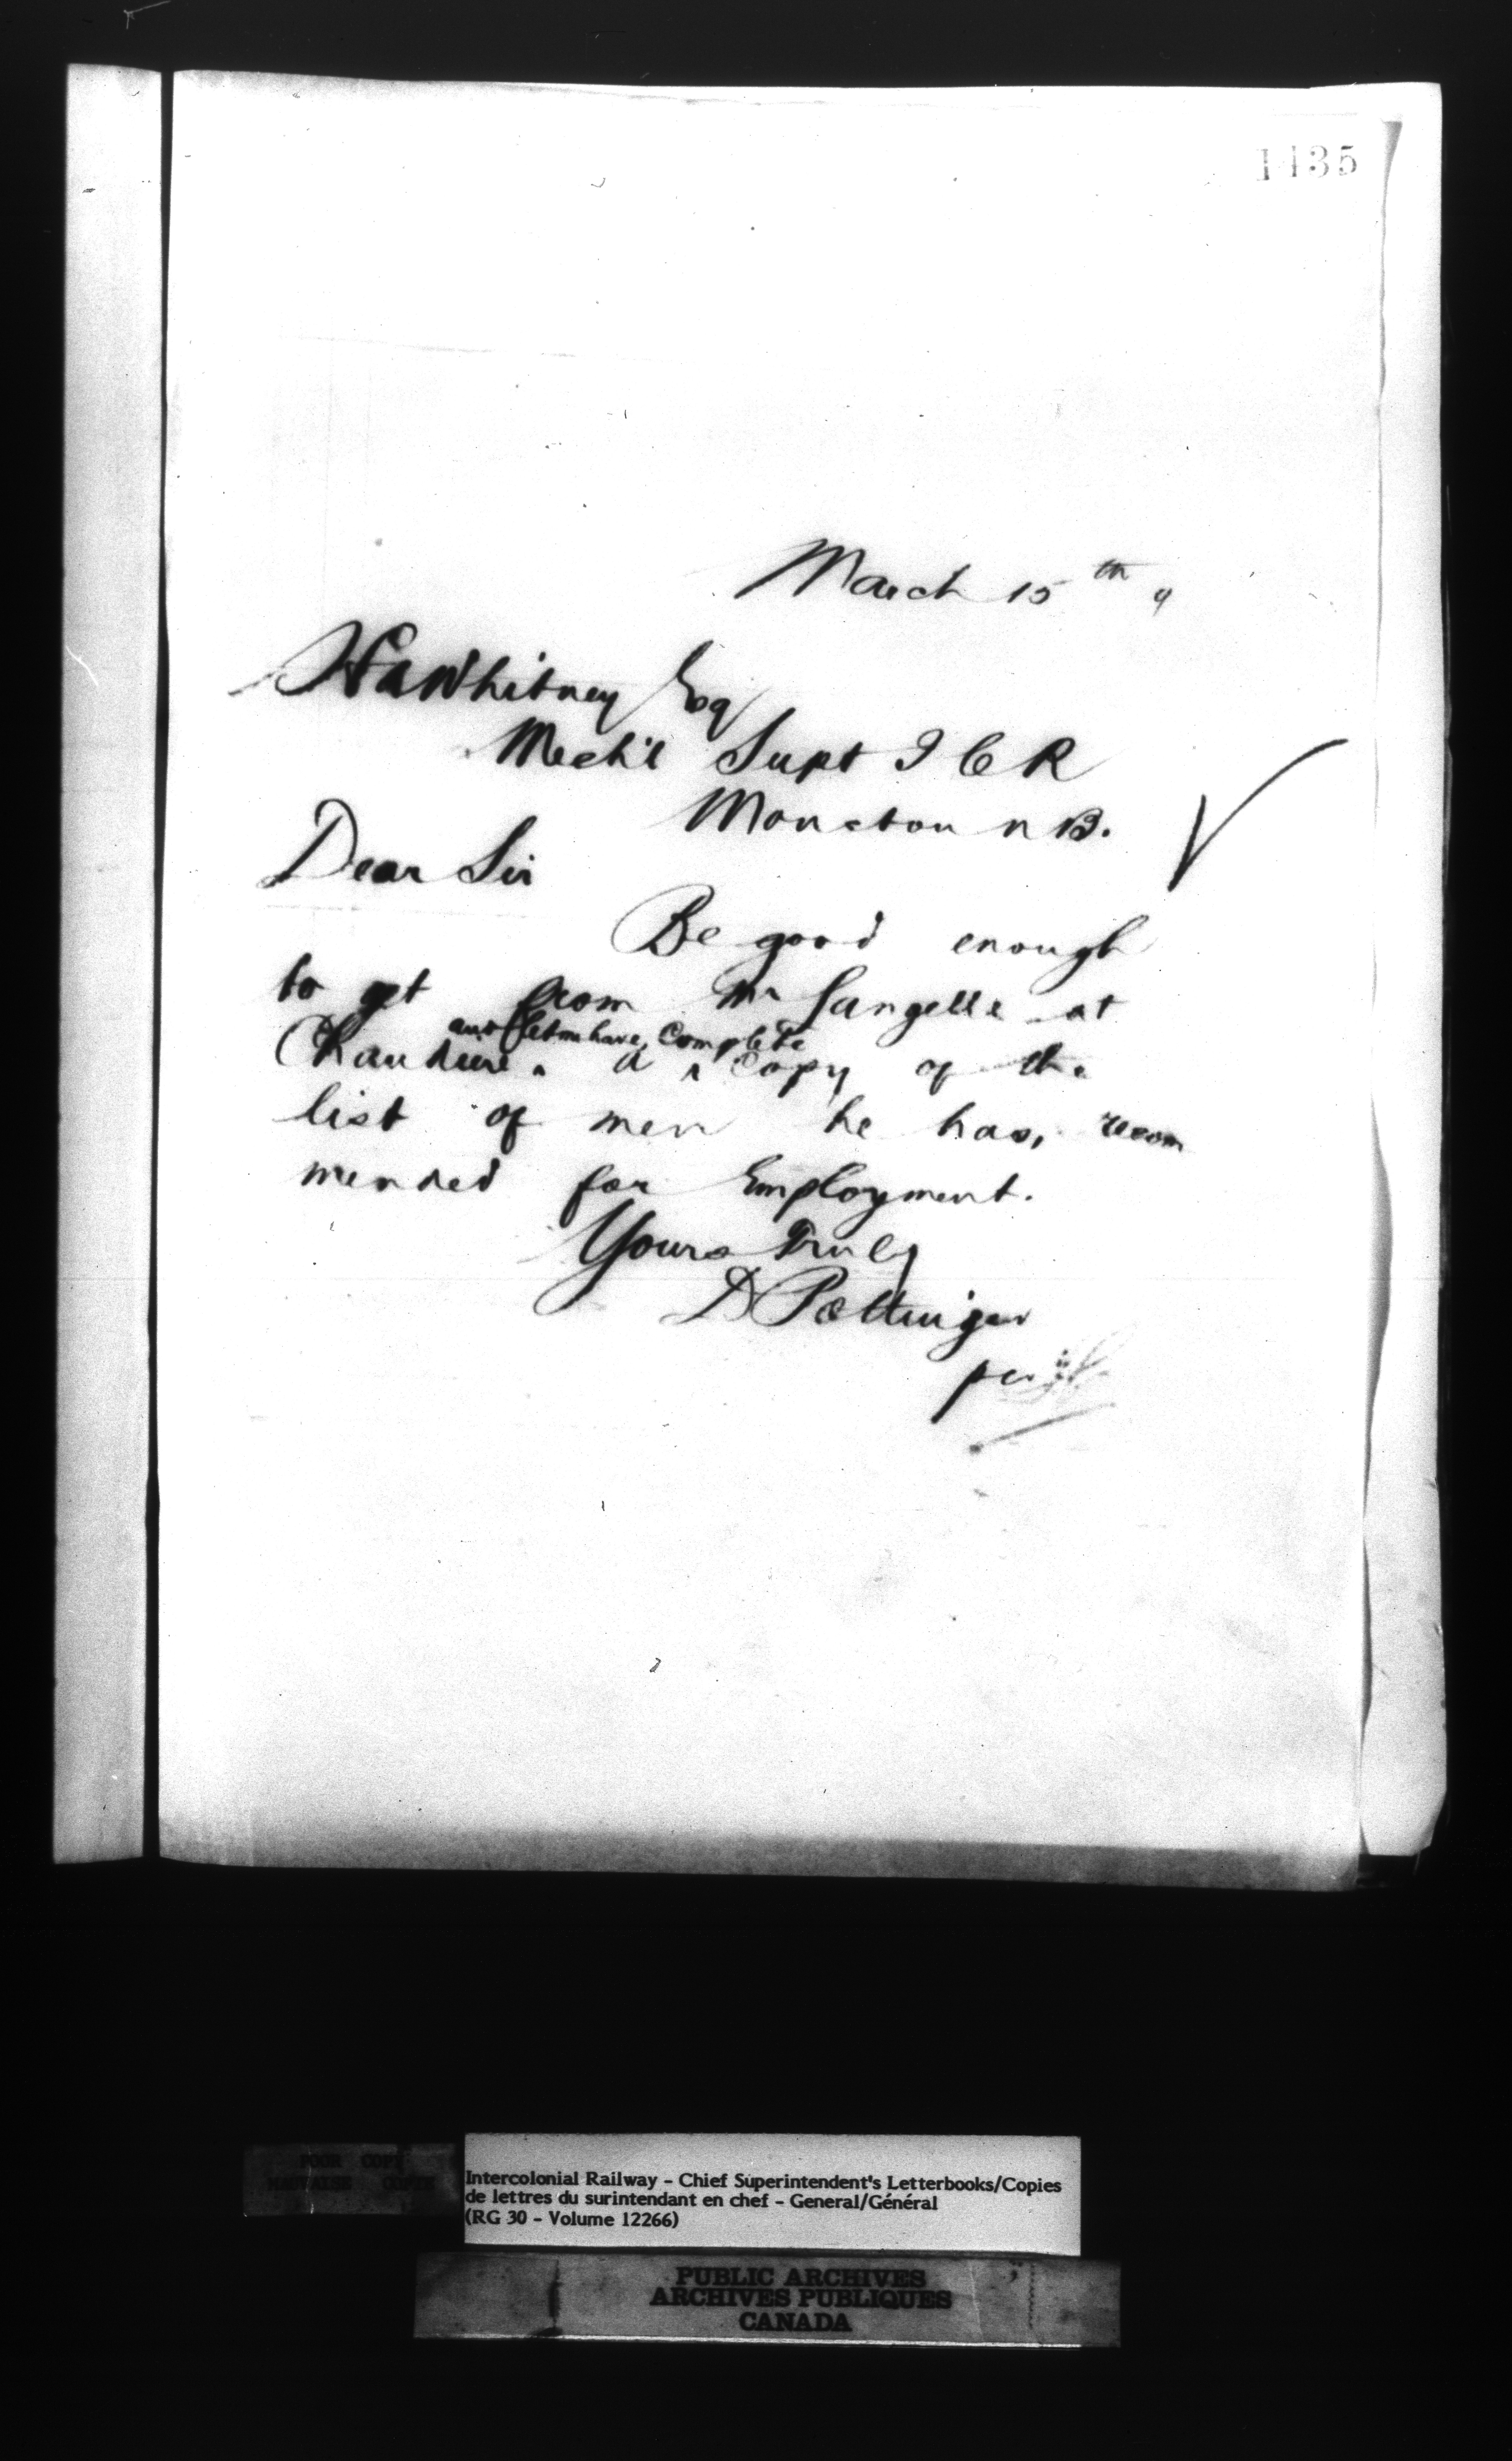 1435
March 15th 9
H A Whitney Esq
Mech'l Supt I C R
Moncton N B.
Dear Sir
Be good enough
to get from Mr Langelle at
and let me have, complete
Chaudiere. a ‸ copy of the
list of men he has, recom
mended for Employment.
Yours Truly
D Pottinger
per
POOR COPY
MAUVAISE COPIE
Intercolonial Railway - Chief Superintendent's Letterbooks/Copies
de lettres du surintendant en chef - General/Général
(RG 30 - Volume 12266)
PUBLIC ARCHIVES
ARCHIVES PUBLIQUES
CANADA